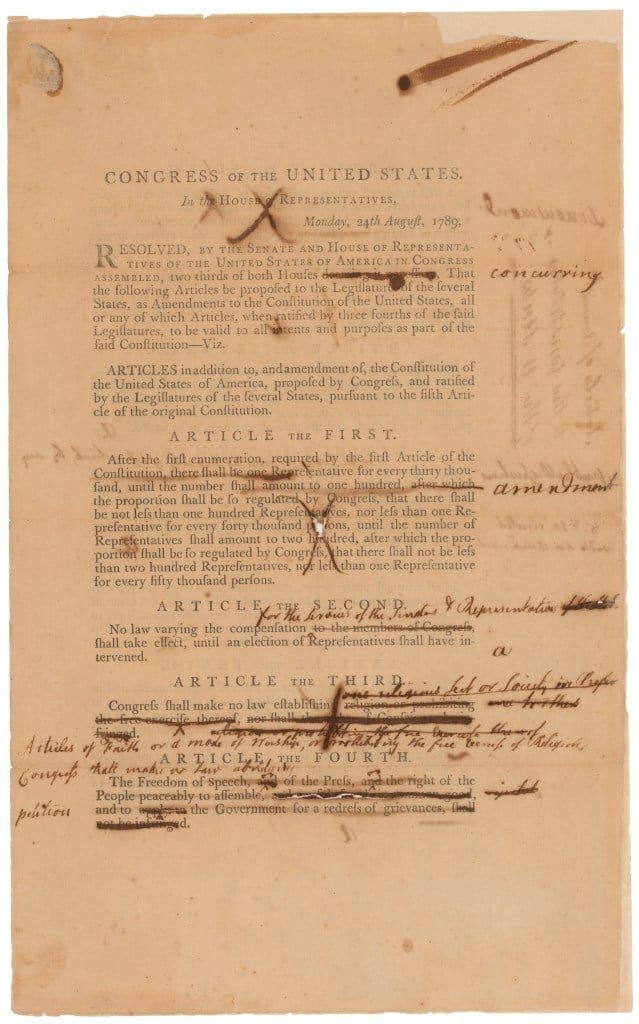 CONGRESS OF THE UNITED STATES.
In the HOUSE of REPRESENTATIVES,
Monday, 24th Auguſt, 1789,
RESOLVED, BY THE SENATE AND HOUSE OF REPRESENTA-
TIVES OF THE UNITED STATES OF AMERICA IN CONGRESS
ASSEMBLED, two thirds of both Houſes deeming it neceſſary, That concurring
the following Articles be propoſed to the Legiſlatures of the ſeveral
States, as Amendments to the Conſtitution of the United States, all
or any of which Articles, when ratified by three fourths of the ſaid
Legiſlatures, to be valid to all intents and purpoſes as part of the
ſaid Conſtitution—Viz.
ARTICLES in addition to, and amendment of, the Conſtitution of
the United States of America, propoſed by Congreſs, and ratified
by the Legiſlatures of the ſeveral States, purſuant to the fifth Arti-
cle of the original Conſtitution.
ARTICLE THE FIRST.
After the firſt enumeration, required by the firſt Article of the
Conſtitution, there ſhall be one Repreſentative for every thirty thou-
ſand, until the number ſhall amount to one hundred, after which amendment
the proportion ſhall be ſo regulated by Congreſs, that there ſhall
be not leſs than one hundred Repreſentatives, nor leſs than one Re-
preſentative for every forty thouſand perſons, until the number of
Repreſentatives ſhall amount to two hundred, after which the pro-
portion ſhall be ſo regulated by Congreſs, that there ſhall not be leſs
than two hundred Repreſentatives, nor leſs than one Repreſentative
for every fifty thouſand perſons.
ARTICLE THE SECOND.
for the Services of the Senators & Representatives
No law varying the compenſation to the members of Congreſs,
ſhall take effect, until an election of Repreſentatives ſhall have in-
tervened.
a
ARTICLE THE THIRD.
one religious Sect or Society in Prefer
Congreſs ſhall make no law eſtabliſhing religion or prohibiting
the free exerciſe thereof, nor ſhall the
fringed.
Articles of Faith or a mode of Worship, or prohibiting the free exercise of Religion,
ARTICLE THE FOURTH.
Congress shall make no Law abridging
The Freedom of Speech, and of the Preſs, and the right of the
People peaceably to aſſemble,
petition
and to apply to the Government for a redreſs of grievances, ſhall
not be infringed.